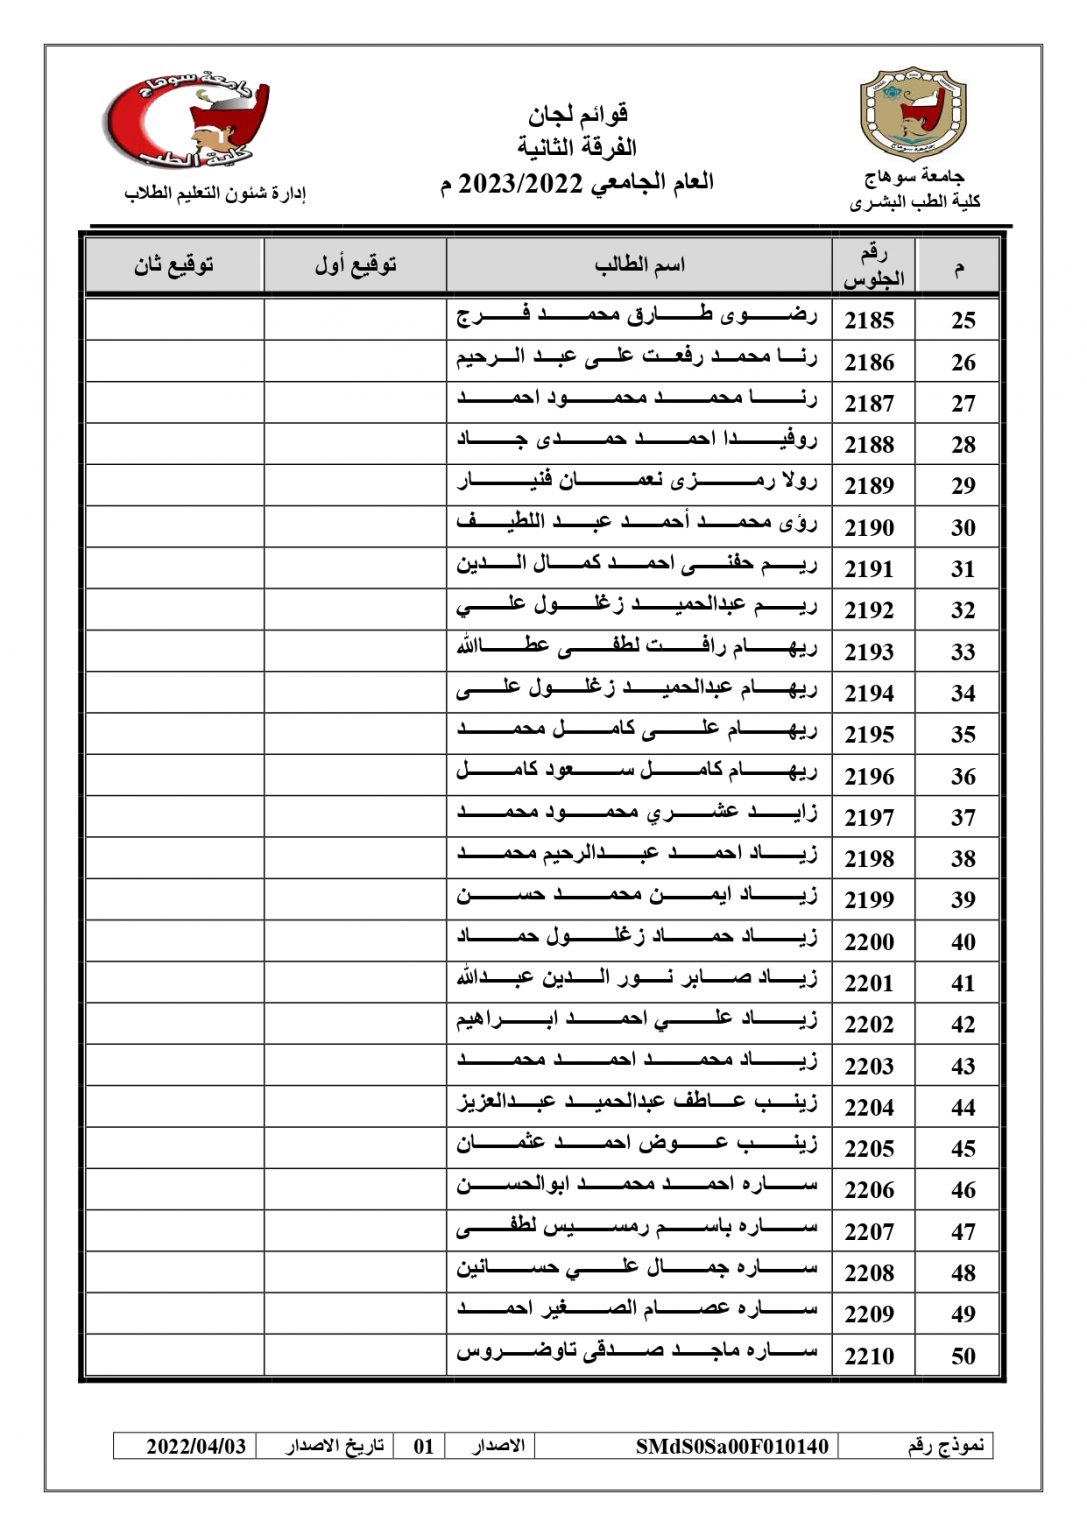 جامعة سوهاج
كلية الطب
جامعة سوهاج
جامعة سوهاج
كلية الطب البشرى
قوائم لجان
الفرقة الثانية
العام الجامعي 2023/2022 م
إدارة شئون التعليم الطلاب
م رقم الجلوس اسم الطالب توقيع أول توقيع ثان
25 2185 رضوى طارق محمد فرج
26 2186 رنا محمد رفعت على عبد الرحيم
27 2187 رنا محمد محمود احمد
28 2188 روفيدا احمد حمدى جاد
29 2189 رولا رمزى نعمان فنيار
30 2190 رؤى محمد أحمد عبد اللطيف
31 2191 ريم حفنى احمد كمال الدين
32 2192 ريم عبدالحميد زغلول علي
33 2193 ريهام رافت لطفى عطاالله
34 2194 ريهام عبدالحميد زغلول على
35 2195 ريهام على كامل محمد
36 2196 ريهام كامل سعود كامل
37 2197 زايد عشري محمود محمد
38 2198 زياد احمد عبدالرحيم محمد
39 2199 زياد ايمن محمد حسن
40 2200 زياد حماد زغلول حماد
41 2201 زياد صابر نور الدين عبدالله
42 2202 زياد علي احمد ابراهيم
43 2203 زياد محمد احمد محمد
44 2204 زينب عاطف عبدالحميد عبدالعزيز
45 2205 زينب عوض احمد عثمان
46 2206 ساره احمد محمد ابوالحسن
47 2207 ساره باسم رمسيس لطفى
48 2208 ساره جمال علي حسانين
49 2209 ساره عصام الصغير احمد
50 2210 ساره ماجد صدقى تاوضروس
نموذج رقم SMdS0Sa00F010140 الاصدار 01 تاريخ الاصدار 2022/04/03